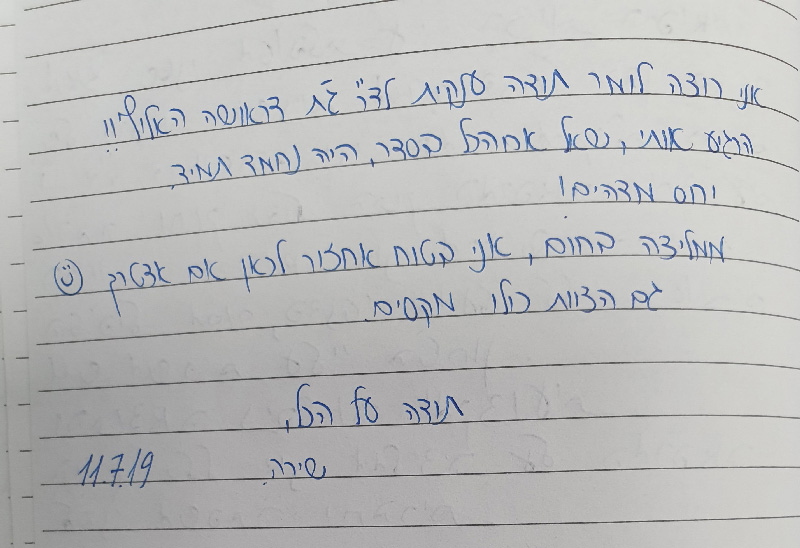 אני רוצה לומר תודה ענקית לד"ר גת דראושה האלוף!!
הרגיע אותי, ושאל אם הכל בסדר, היה נחמד תמיד.
יחס מדהים!
ממליצה בחום, אני בטוח אחזור לכאן אם אצטרך ☺
גם הצוות כולו מקסים.
תודה על הכל,
שירה. 11.7.19